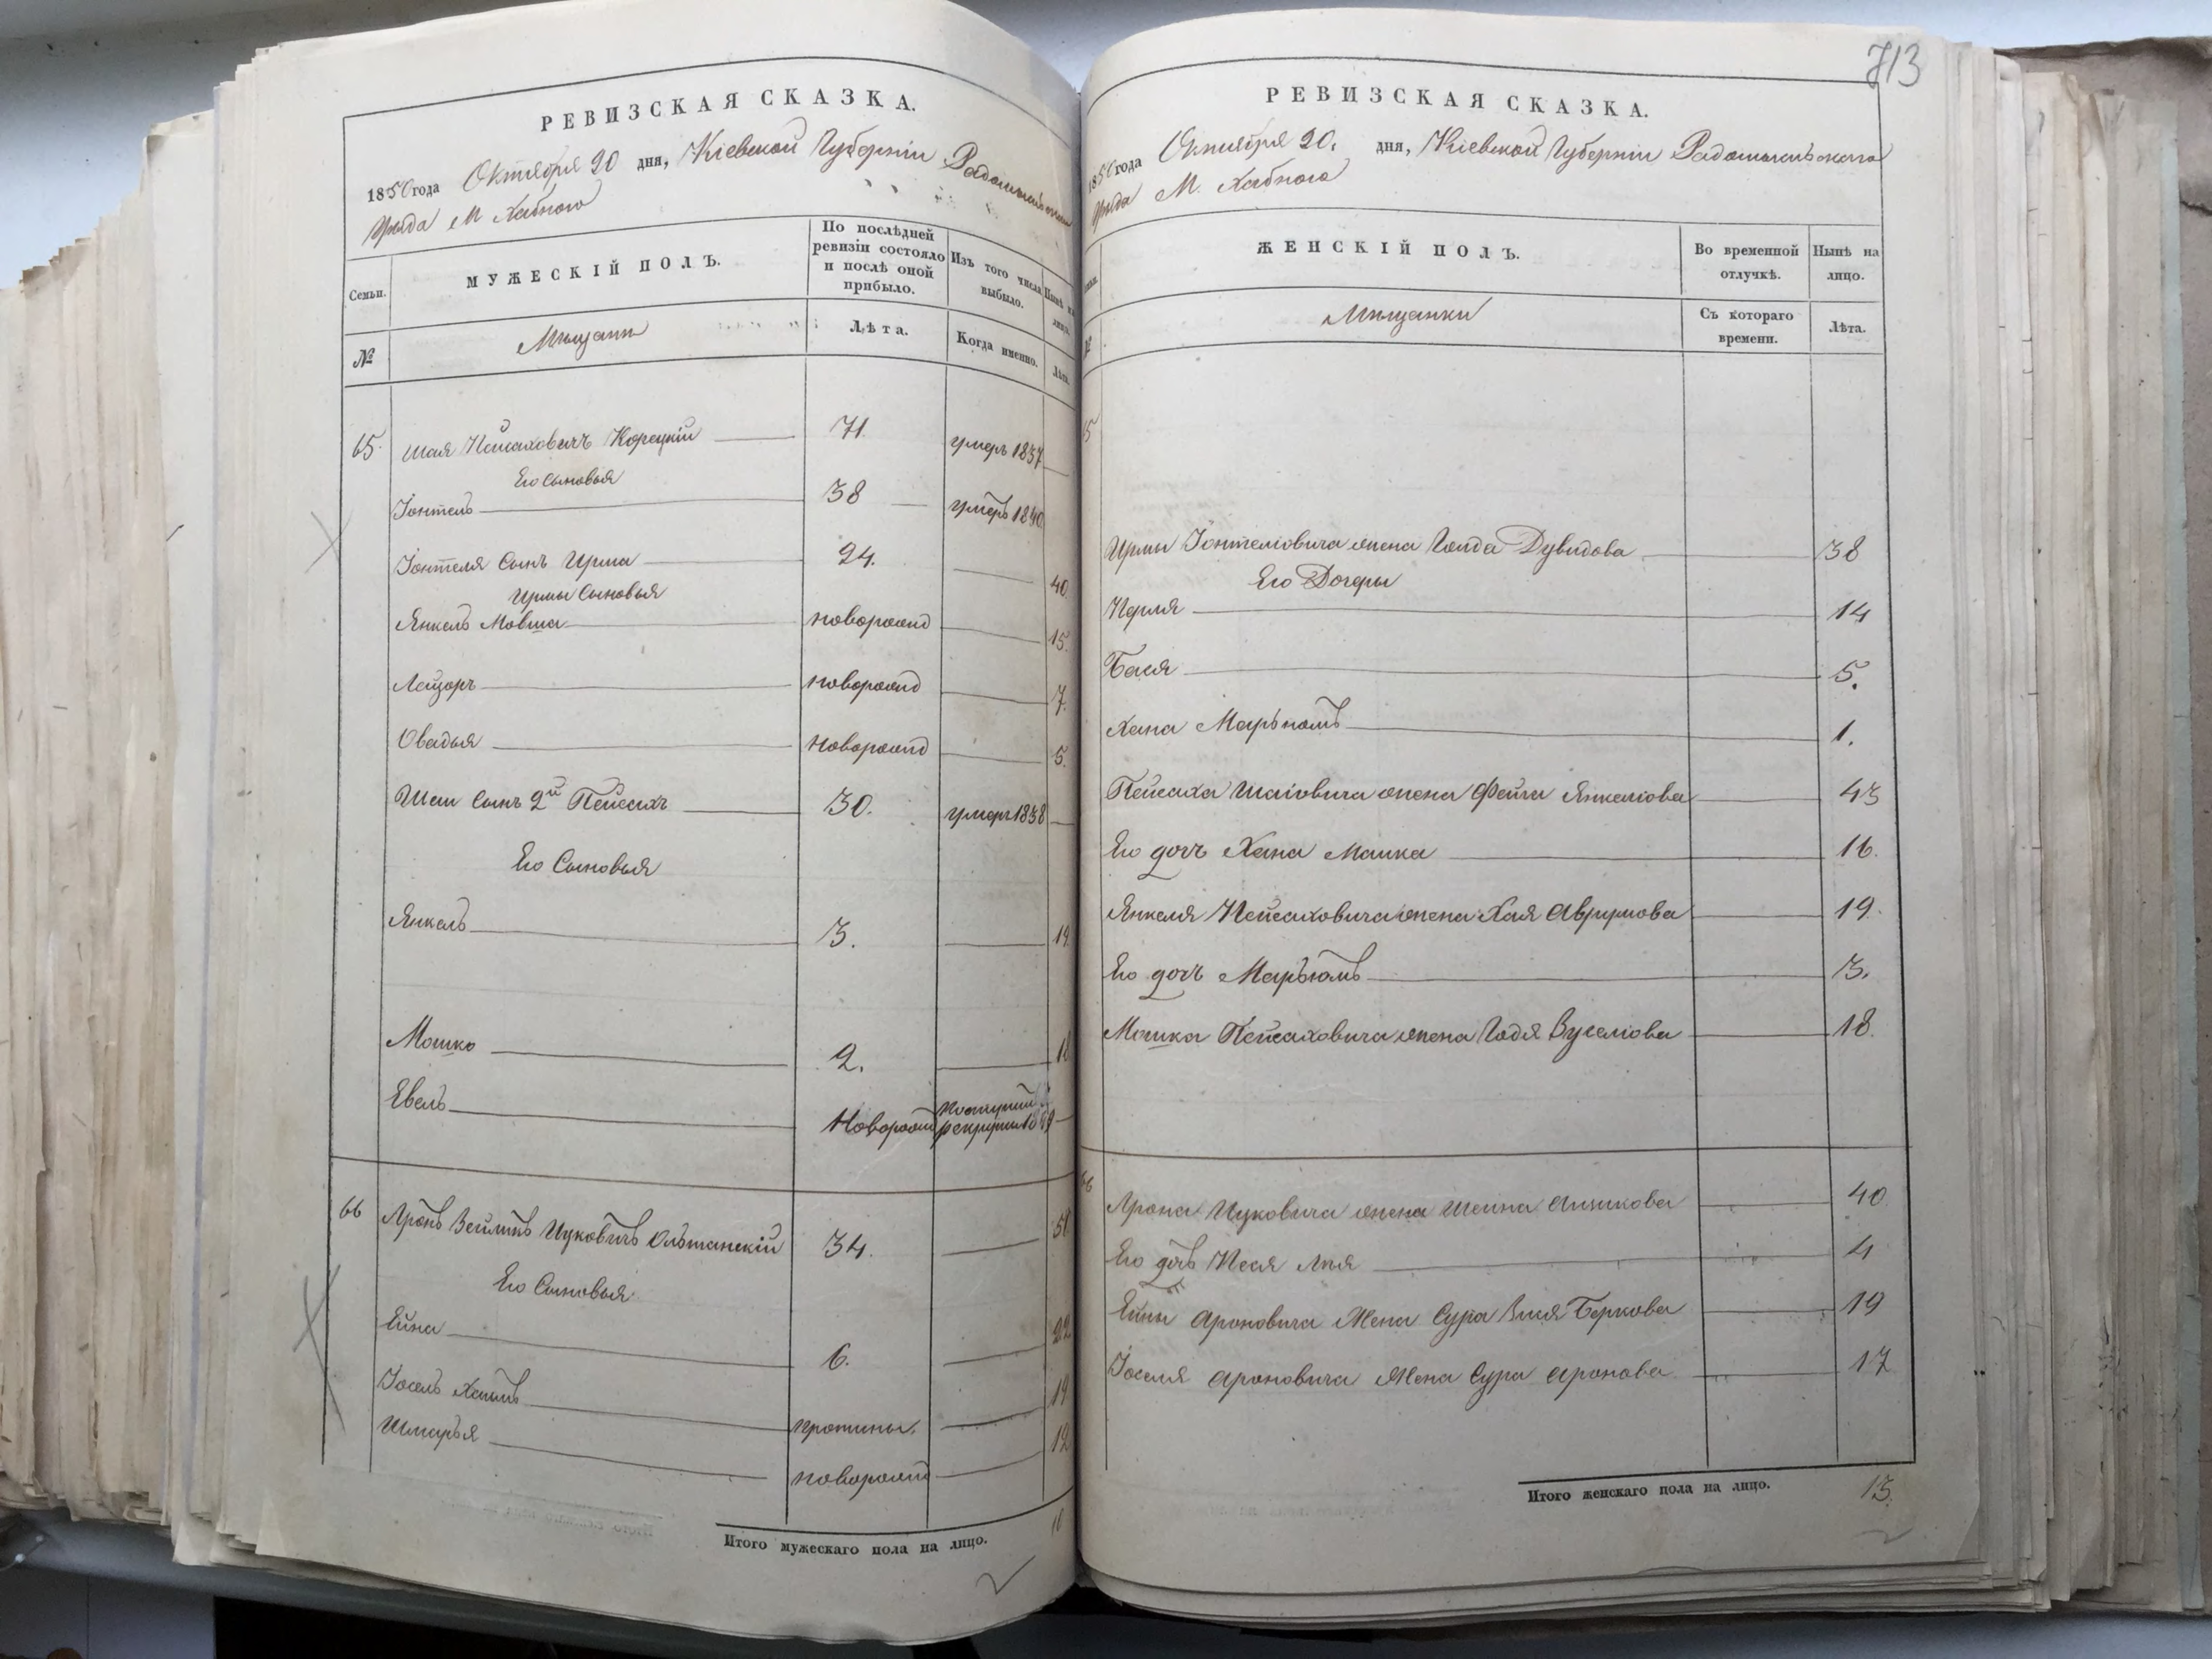 РЕВИЗСКАЯ СКАЗКА.
1850 года Октября 20 дня, Кіевской Губерніи Радомысльскаго
Уѣзда М Хабного
Семьи.
МУЖЕСКІЙ ПОЛЪ.
По послѣдней ревизіи состояло и послѣ оной прибыло.
Изъ того числа выбыло.
Нынѣ на лицо.
№
Мѣщане
Лѣта.
Когда именно.
Лѣта.
65. Шая Пейсаховичъ Корецкій 71 умеръ 1837
Его Сыновья
Іонтель 38 умеръ 1840
Іонтеля Сынъ Ирма 24. 40
Ирмы Сыновья
Янкель Мовша новорожд 15.
Лейзоръ новорожд 7.
Овадья новорожд 5.
Шаи Сынъ 2й Пейсахъ 30. умеръ 1838
Его Сыновья
Янкель 3. 19.
Мошко 2. 18
Евель Новорожд рекруты
66 Аронъ Зейликъ Ицковичъ Ольшанскій 34. 51
Его Сыновья
Ейна 6. 22
Іосель Хаимъ пропины. 19
Шмарья новорожд 12
Итого мужескаго пола на лицо. 10
713
РЕВИЗСКАЯ СКАЗКА.
1850 года Октября 20. дня, Кіевской Губерніи Радомысльскаго
Уѣзда М. Хабного
ЖЕНСКІЙ ПОЛЪ.
Во временной отлучкѣ.
Нынѣ на лицо.
Мѣщанки
Съ котораго времени.
Лѣта.
Ирмы Іонтеліовича жена Голда Дувидова 38
Его Дочеры
Перля 14
Бася 5.
Хана Марьямъ 1.
Пейсаха Шаіовича жена Фейга Янкеліова 43
Его дочъ Хана Малка 16.
Янкеля Пейсаховича жена Хая Аврумова 19.
Его дочъ Марьямъ 3.
Мошка Пейсаховича жена Годя Зуселіова 18.
66 Арона Ицковича жена Шейна Аншикова 40
Его дочъ Песя Лея 4
Ейны Ароновича Жена Сура Беркова 19
Іоселя Ароновича Жена Сура Аронова 17
Итого женскаго пола на лицо. 13.